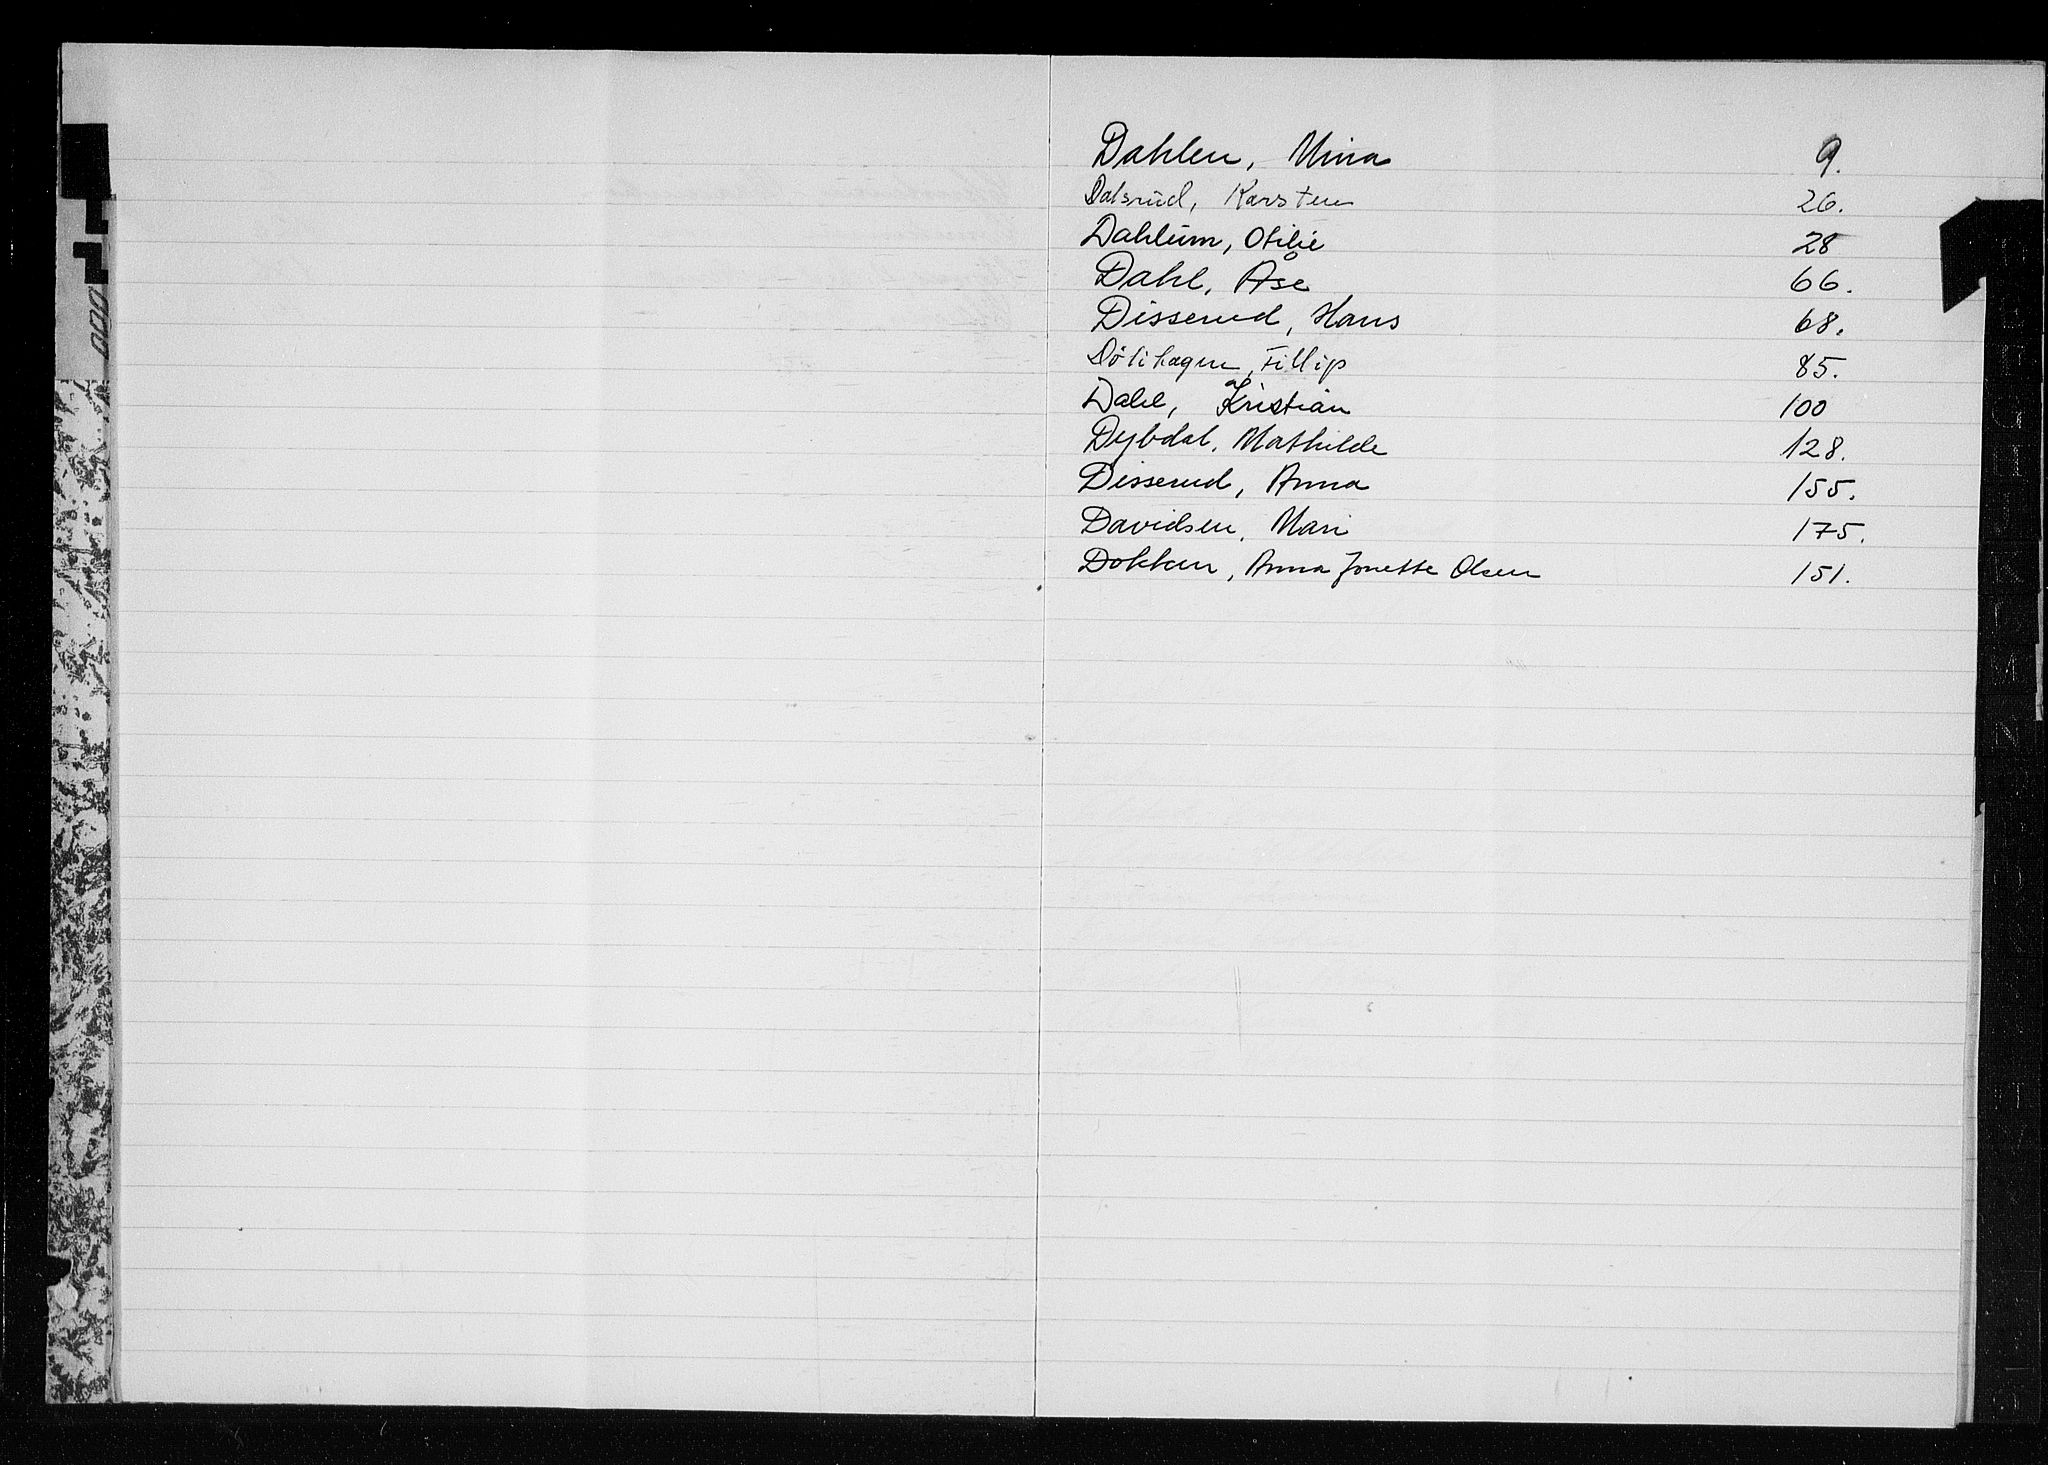 Dahlen, Mina 9.
Dalsrud, Karsten 26.
Dahlum, Otilie 28
Dahl, Åse 66.
Disserud, Hans 68.
Dölihagen, Fillip 85.
Dahl, Kristian 100
Dybdal, Mathilde 128.
Disserud, Anna 155.
Davidsen, Mari 175.
Dokken, Anna Jonette Olsen 151.